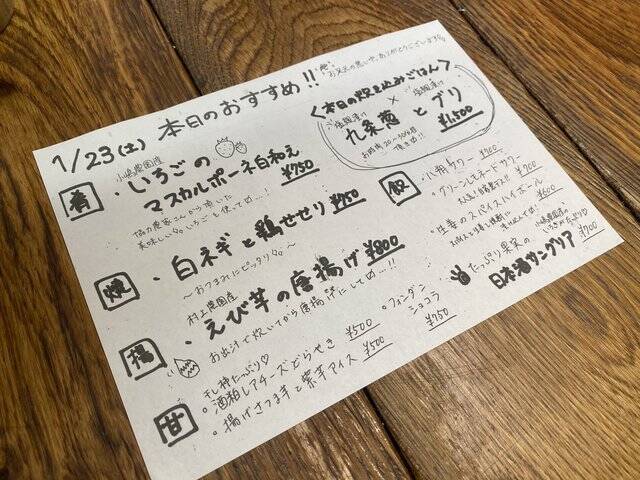 1/23(土) 本日のおすすめ!!
お足元の悪い中、ありがとうございます。
<本日の炊き込みごはん>
塩麹漬け × 塩麹漬け
九条葱とブリ
¥1,500
お時間20~30分程
頂きます!!
肴
小嶋農園産
・いちごの
マスカルポーネ白和え
¥750
協力農家さんから頂いた
美味しい いちごも使って…!
焼
・白ネギと鶏せせり ¥750
~おつまみにピッタリ~
揚
村上農園産
・えび芋の唐揚げ ¥800
お出汁で炊いてから唐揚げにして…!!
甘
干し柿たっぷり♡
・酒粕レアチーズどらやき ¥500
・揚げさつま芋と紫芋アイス ¥500
・フォンダン
ショコラ
¥750
飲
・八朔サワー ¥700
・グリーンレモネードサワー ¥700
・生姜のスパイスハイボール ¥600
小嶋農園の
いちごがたっぷり
たっぷり果実の
日本酒サングリア ¥700